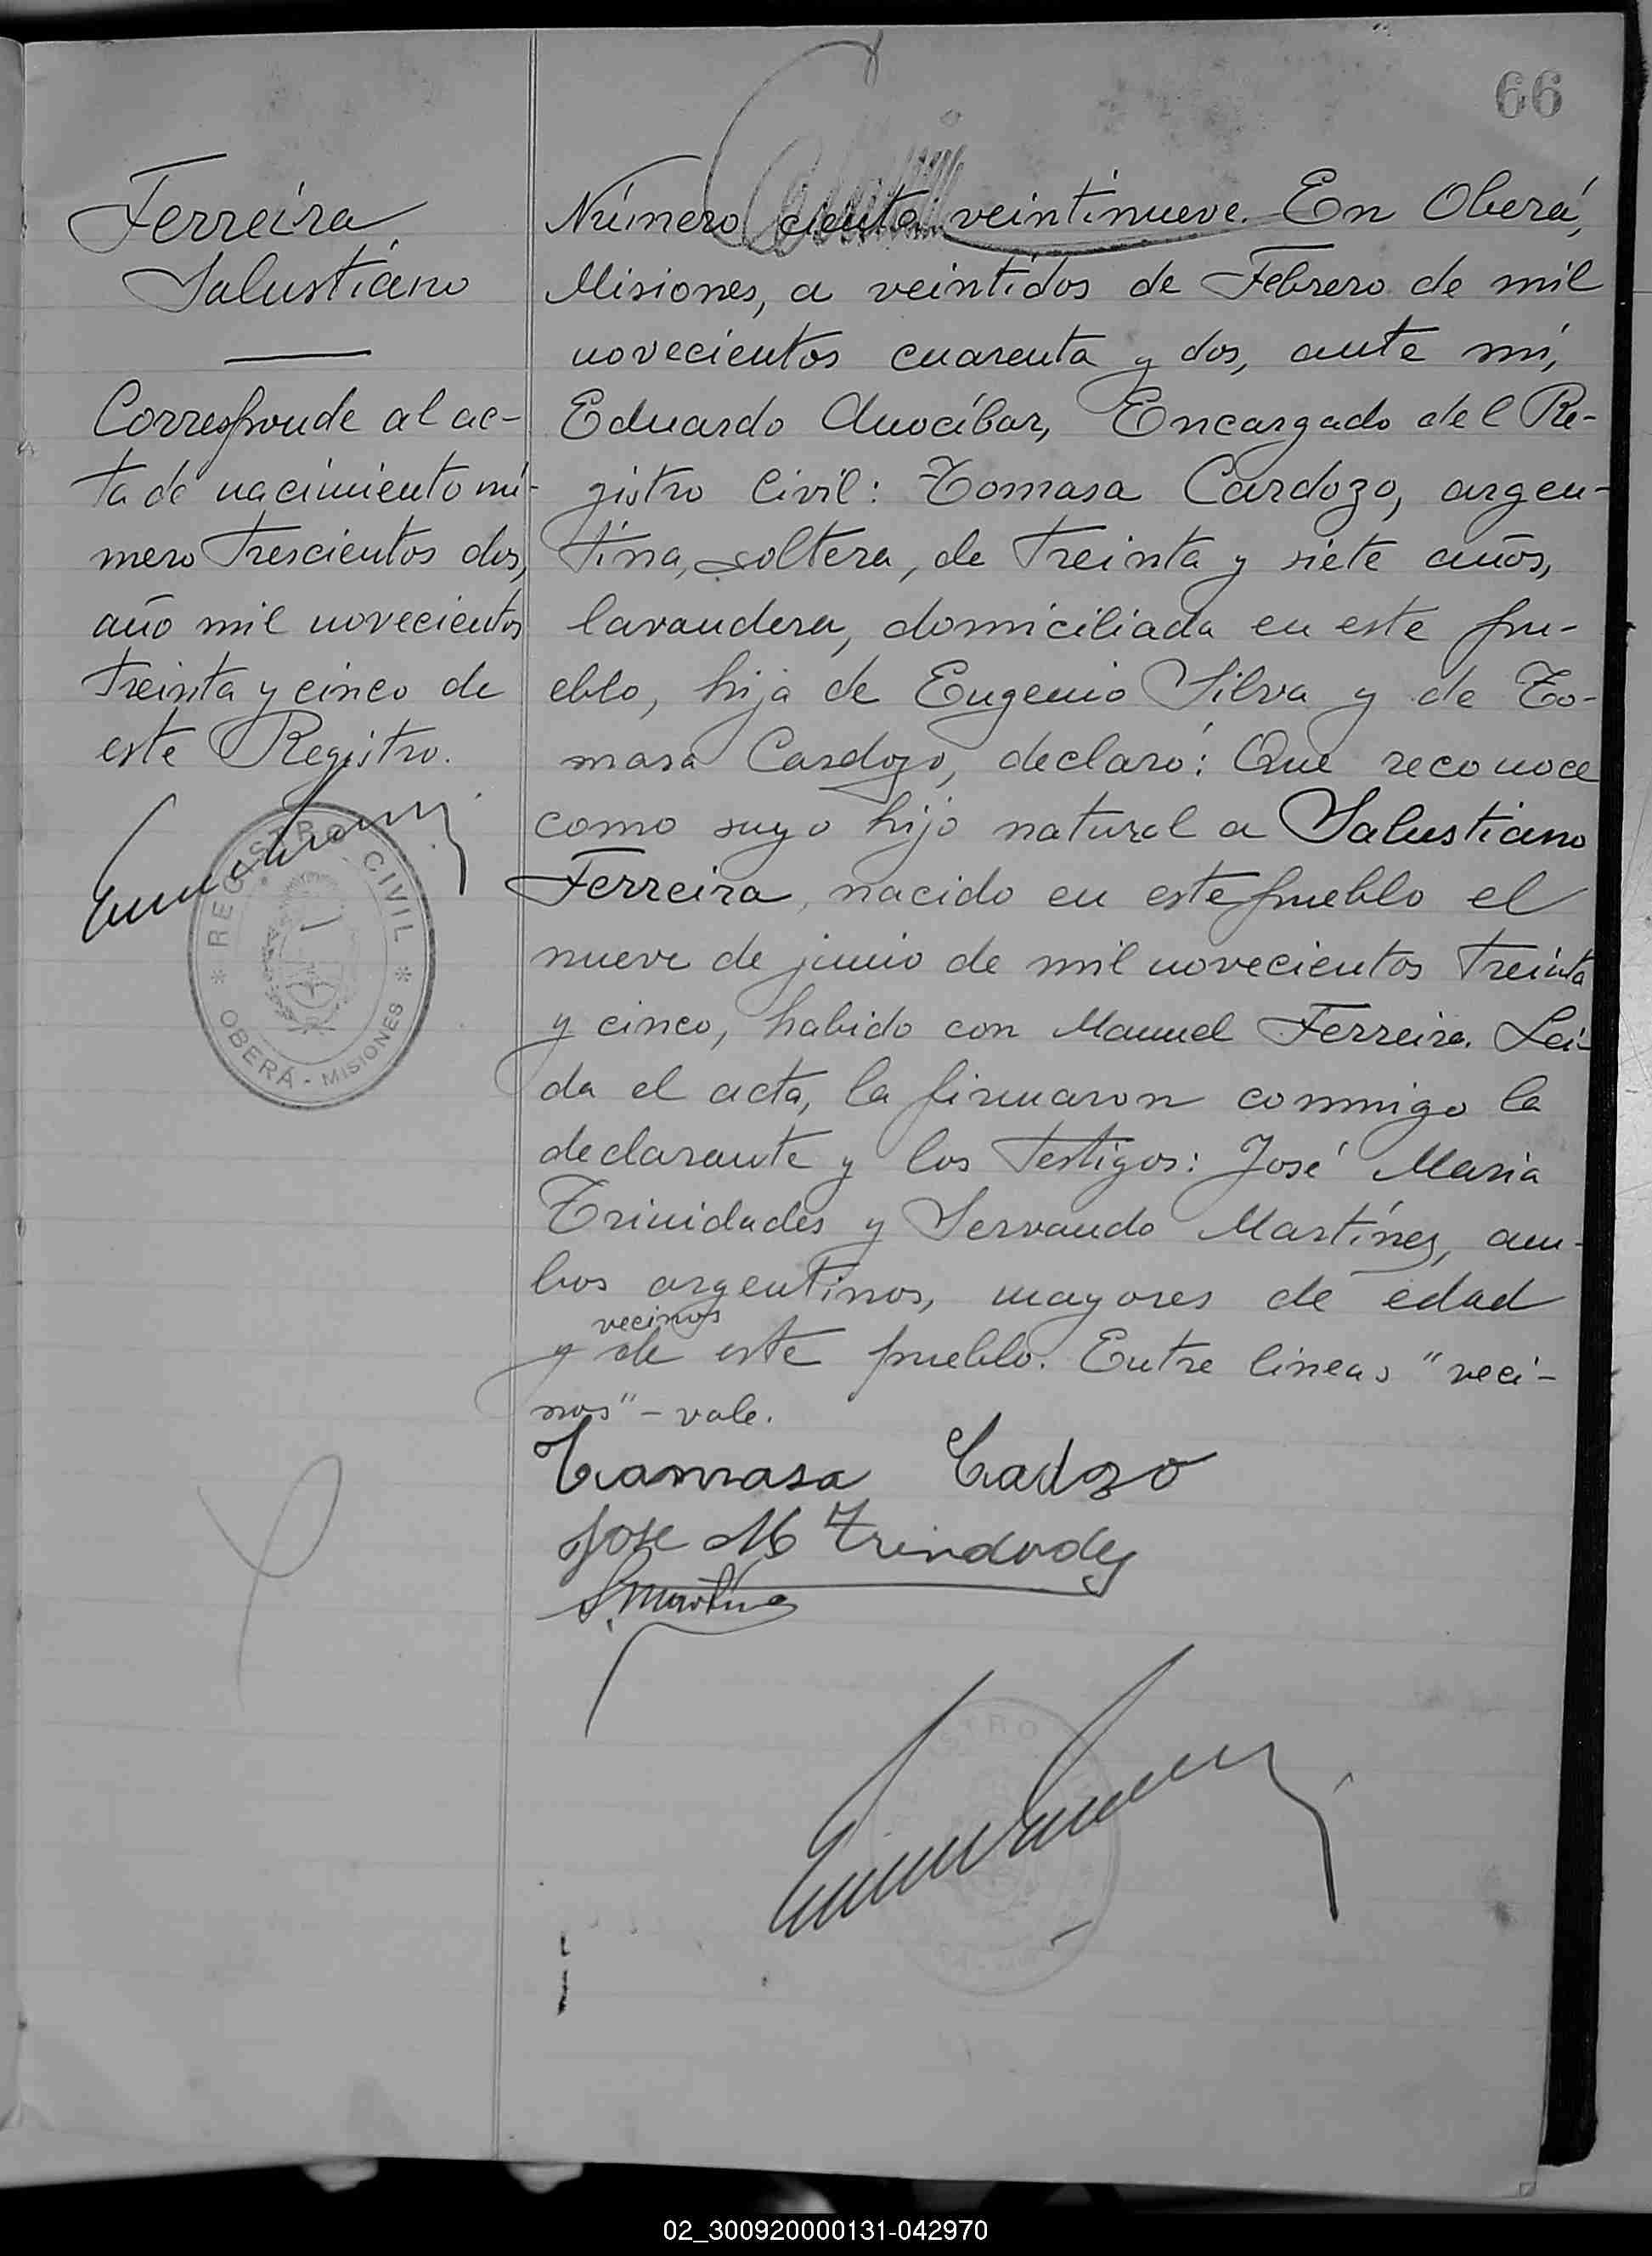 66
Ferreira
Salustiano
Corresponde al ac-
ta de nacimiento nú-
mero trescientos dos,
año mil novecientos
treinta y cinco de
este Registro.
REGISTRO CIVIL
* OBERÁ - MISIONES *
Número ciento veintinueve. En Oberá,
Misiones, a veintidos de Febrero de mil
novecientos cuarenta y dos, ante mí,
Eduardo Anocíbar, Encargado del Re-
gistro Civil: Tomasa Cardozo, argen-
tina, soltera, de treinta y siete años,
lavandera, domiciliada en este pu-
eblo, hija de Eugenio Silva y de To-
masa Cardozo, declaró: Que reconoce
como suyo hijo natural a Salustiano
Ferreira, nacido en este pueblo el
nueve de junio de mil novecientos treinta
y cinco, habido con Manuel Ferreira. Leí-
da el acta, la firmaron conmigo la
declarante y los testigos: José María
Trinidades y Servando Martínez, am-
bos argentinos, mayores de edad
vecinos
y de este pueblo. Entre líneas "veci-
nos" - vale.
Tamrasa Cadozo
Jose M Trindodes
S. Martinez
02_300920000131-042970